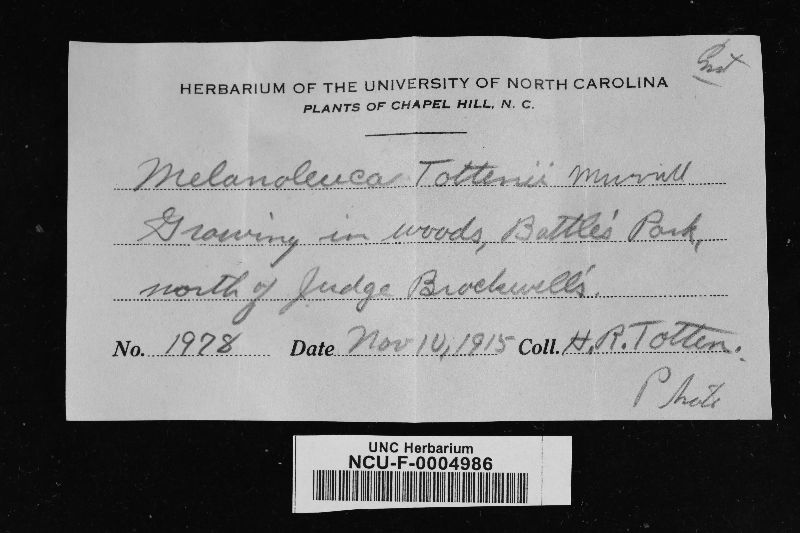 HERBARIUM OF THE UNIVERSITY OF NORTH CAROLINA
PLANTS OF CHAPEL HILL, N. C.
Melanoleuca Tottenii Murrill
Growing in woods, Battle's Park,
north of Judge Brockwell's.
No. 1978 Date Nov 10, 1915 Coll. H. R. Totten.
Photo
UNC Herbarium
NCU-F-0004986